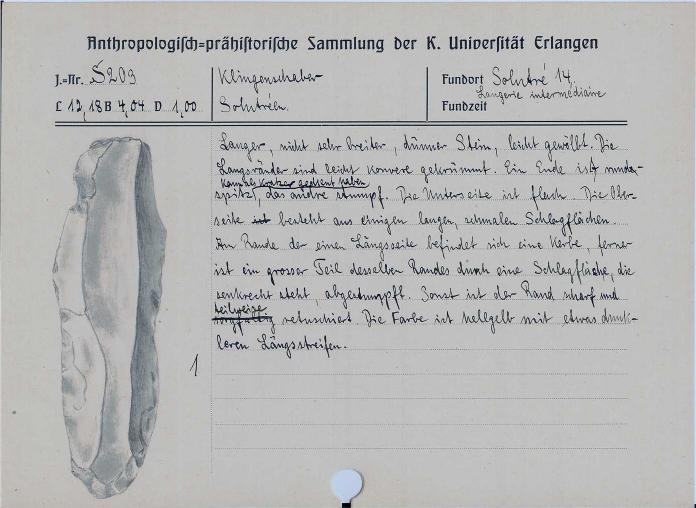 Anthropologisch=prähistorische Sammlung der K. Universität Erlangen
J.=Nr. S203
Klingenschaber
Fundort Solutré 14.
L 12,18 B 4,04 D 1,00
Solutréen.
Langerie intermédiaire
Fundzeit
Langer, nicht sehr breiter, dünner Stein, leicht gewölbt. Die
Längsränder sind leicht konvex gekrümmt. Ein Ende ist
kann als Kratzer gedient haben
spitz, das andre stumpf. Die Unterseite ist flach. Die Ober-
seite ist besteht aus einigen langen, schmalen Schlagflächen.
Am Rande der einen Längsseite befindet sich eine Kerbe, ferner
ist ein grosser Teil desselben Randes durch eine Schlagfläche, die
senkrecht steht, abgestumpft. Sonst ist der Rand scharf und
teilweise
sorgfältig retuschiert. Die Farbe ist hellgelb mit etwas dunk-
leren Längsstreifen.
1